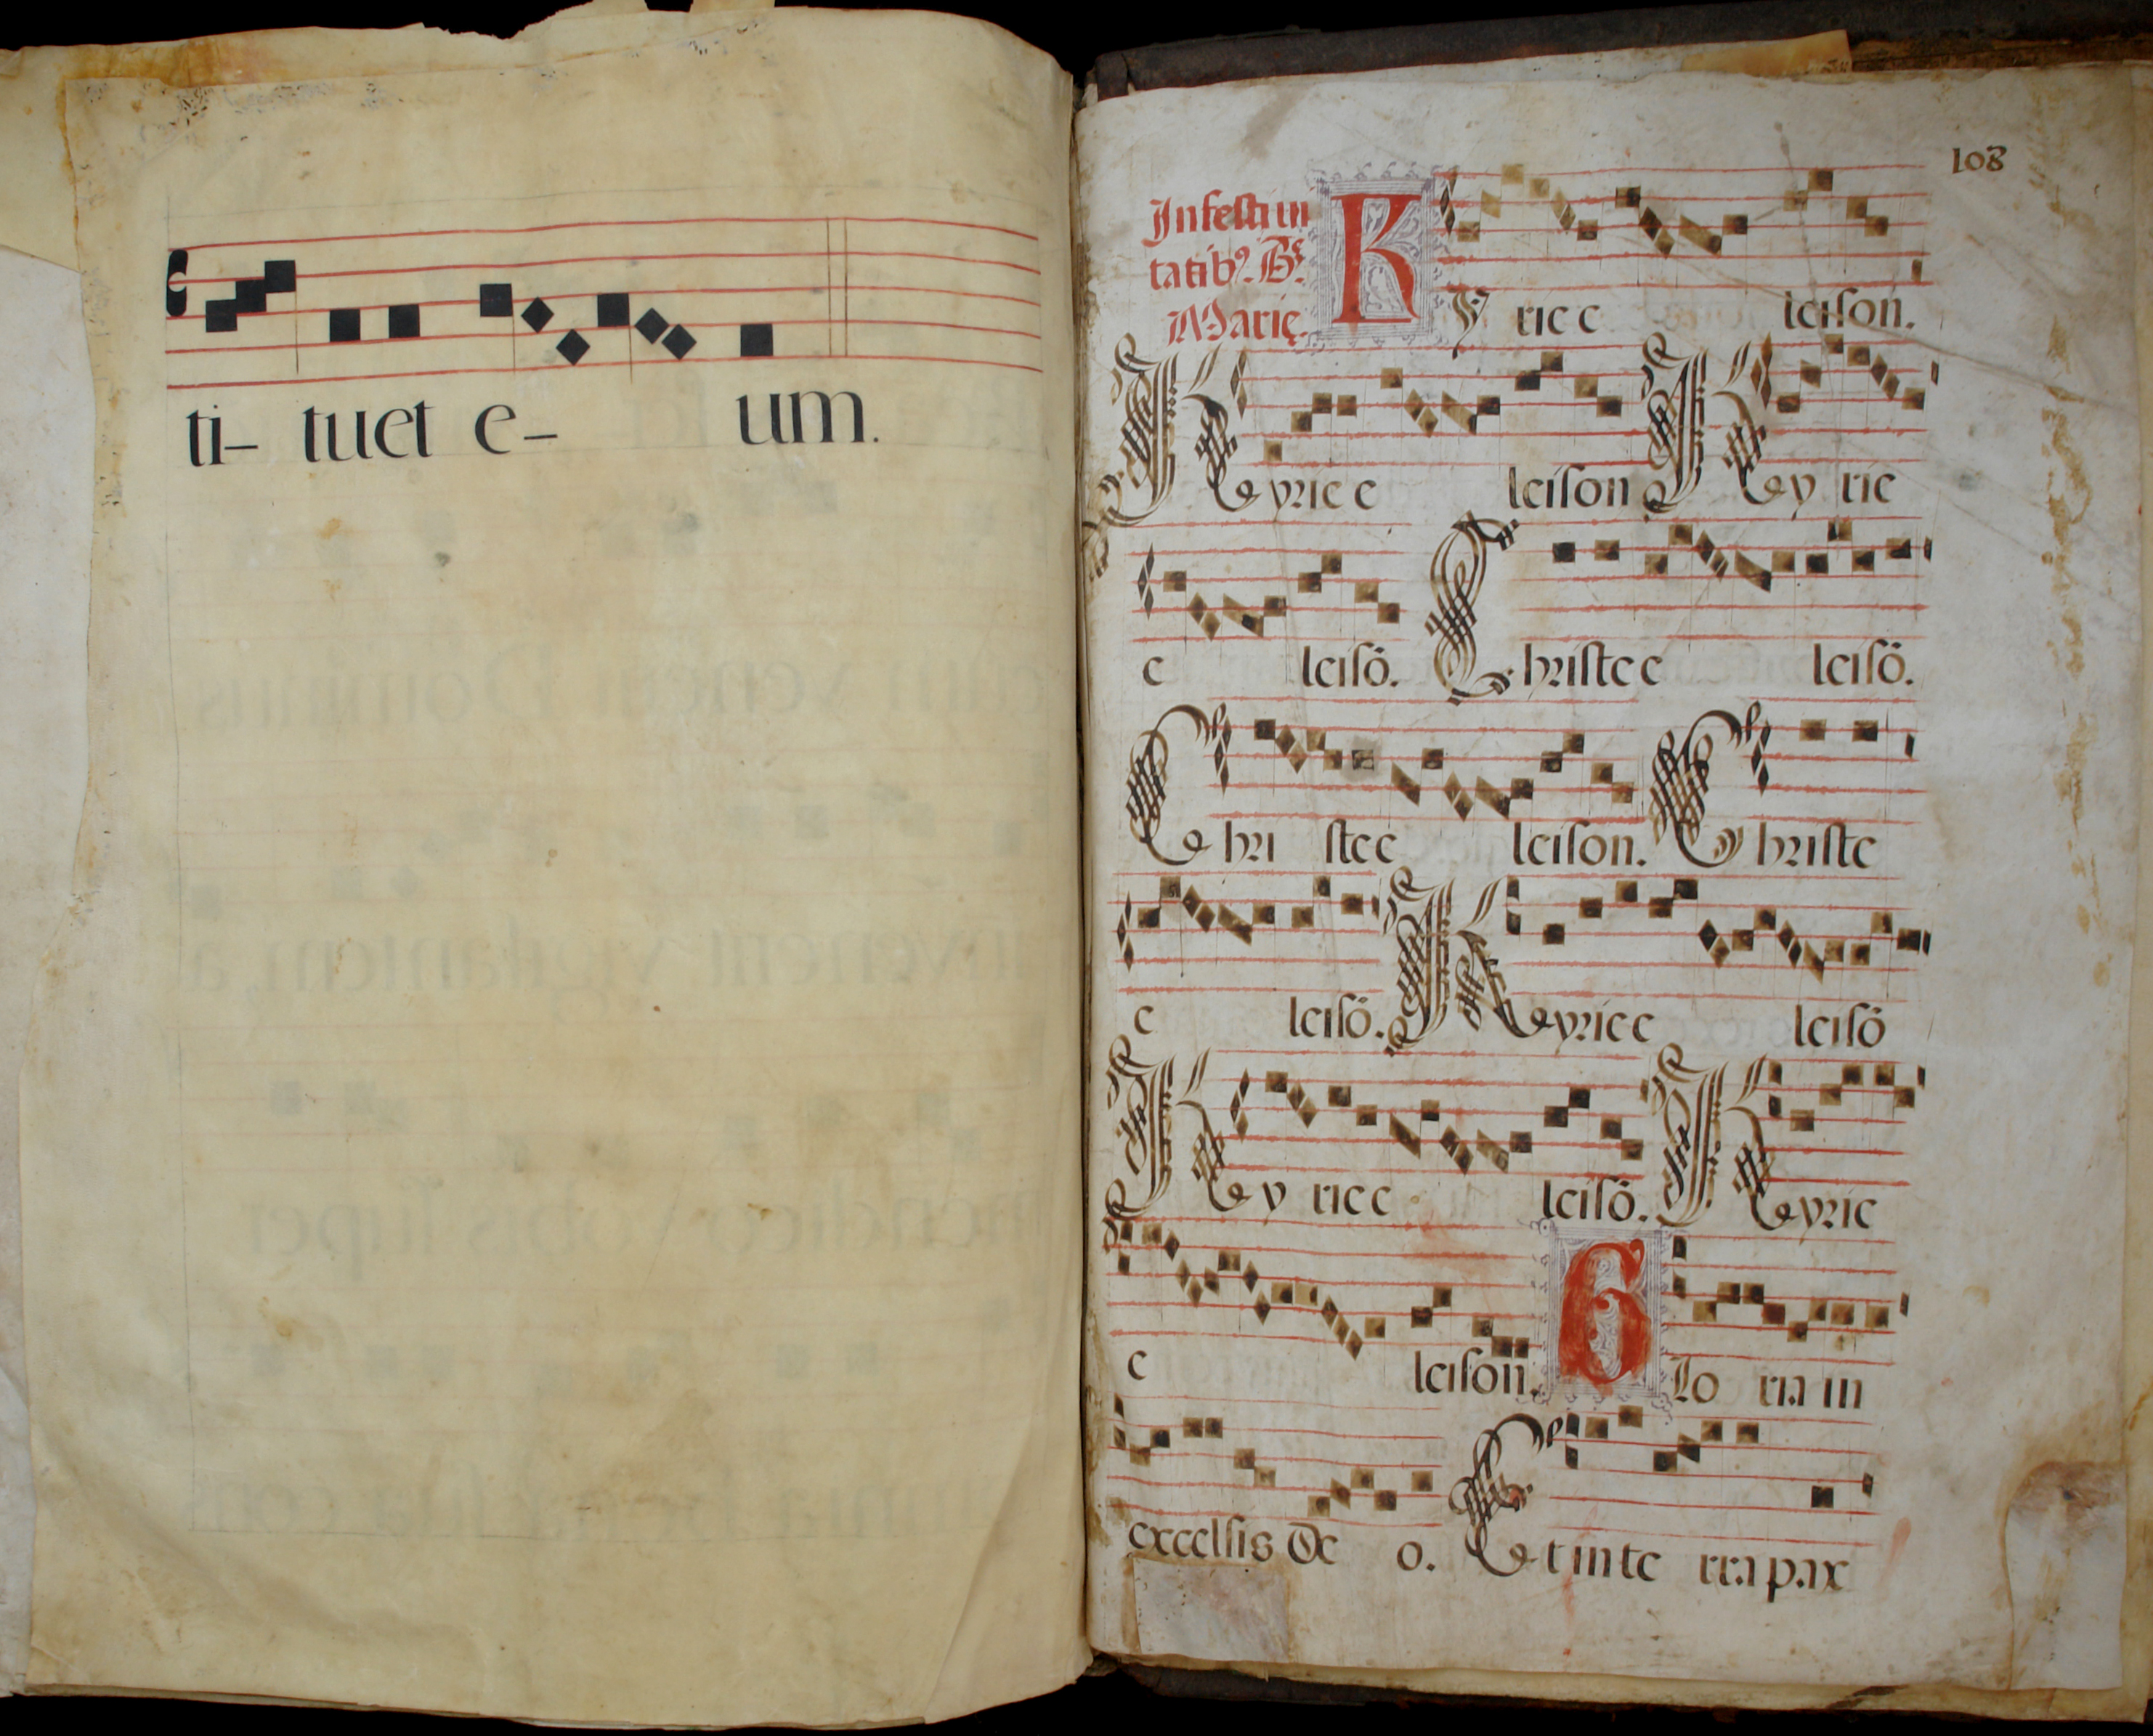 ti– tuet e– um.
108
In festiui
tatib⁹. Bᵉ.
Marię.
K y rie e leison.
Kyrie e leison Ky rie
e leisō. Christe e leisō.
Chri ste e leison. Christe
e leisō. Kyrie e leisō
Ky rie e leisō. Kyrie
e leison. Glo ria in
excelsis De o. Et in te rra pax